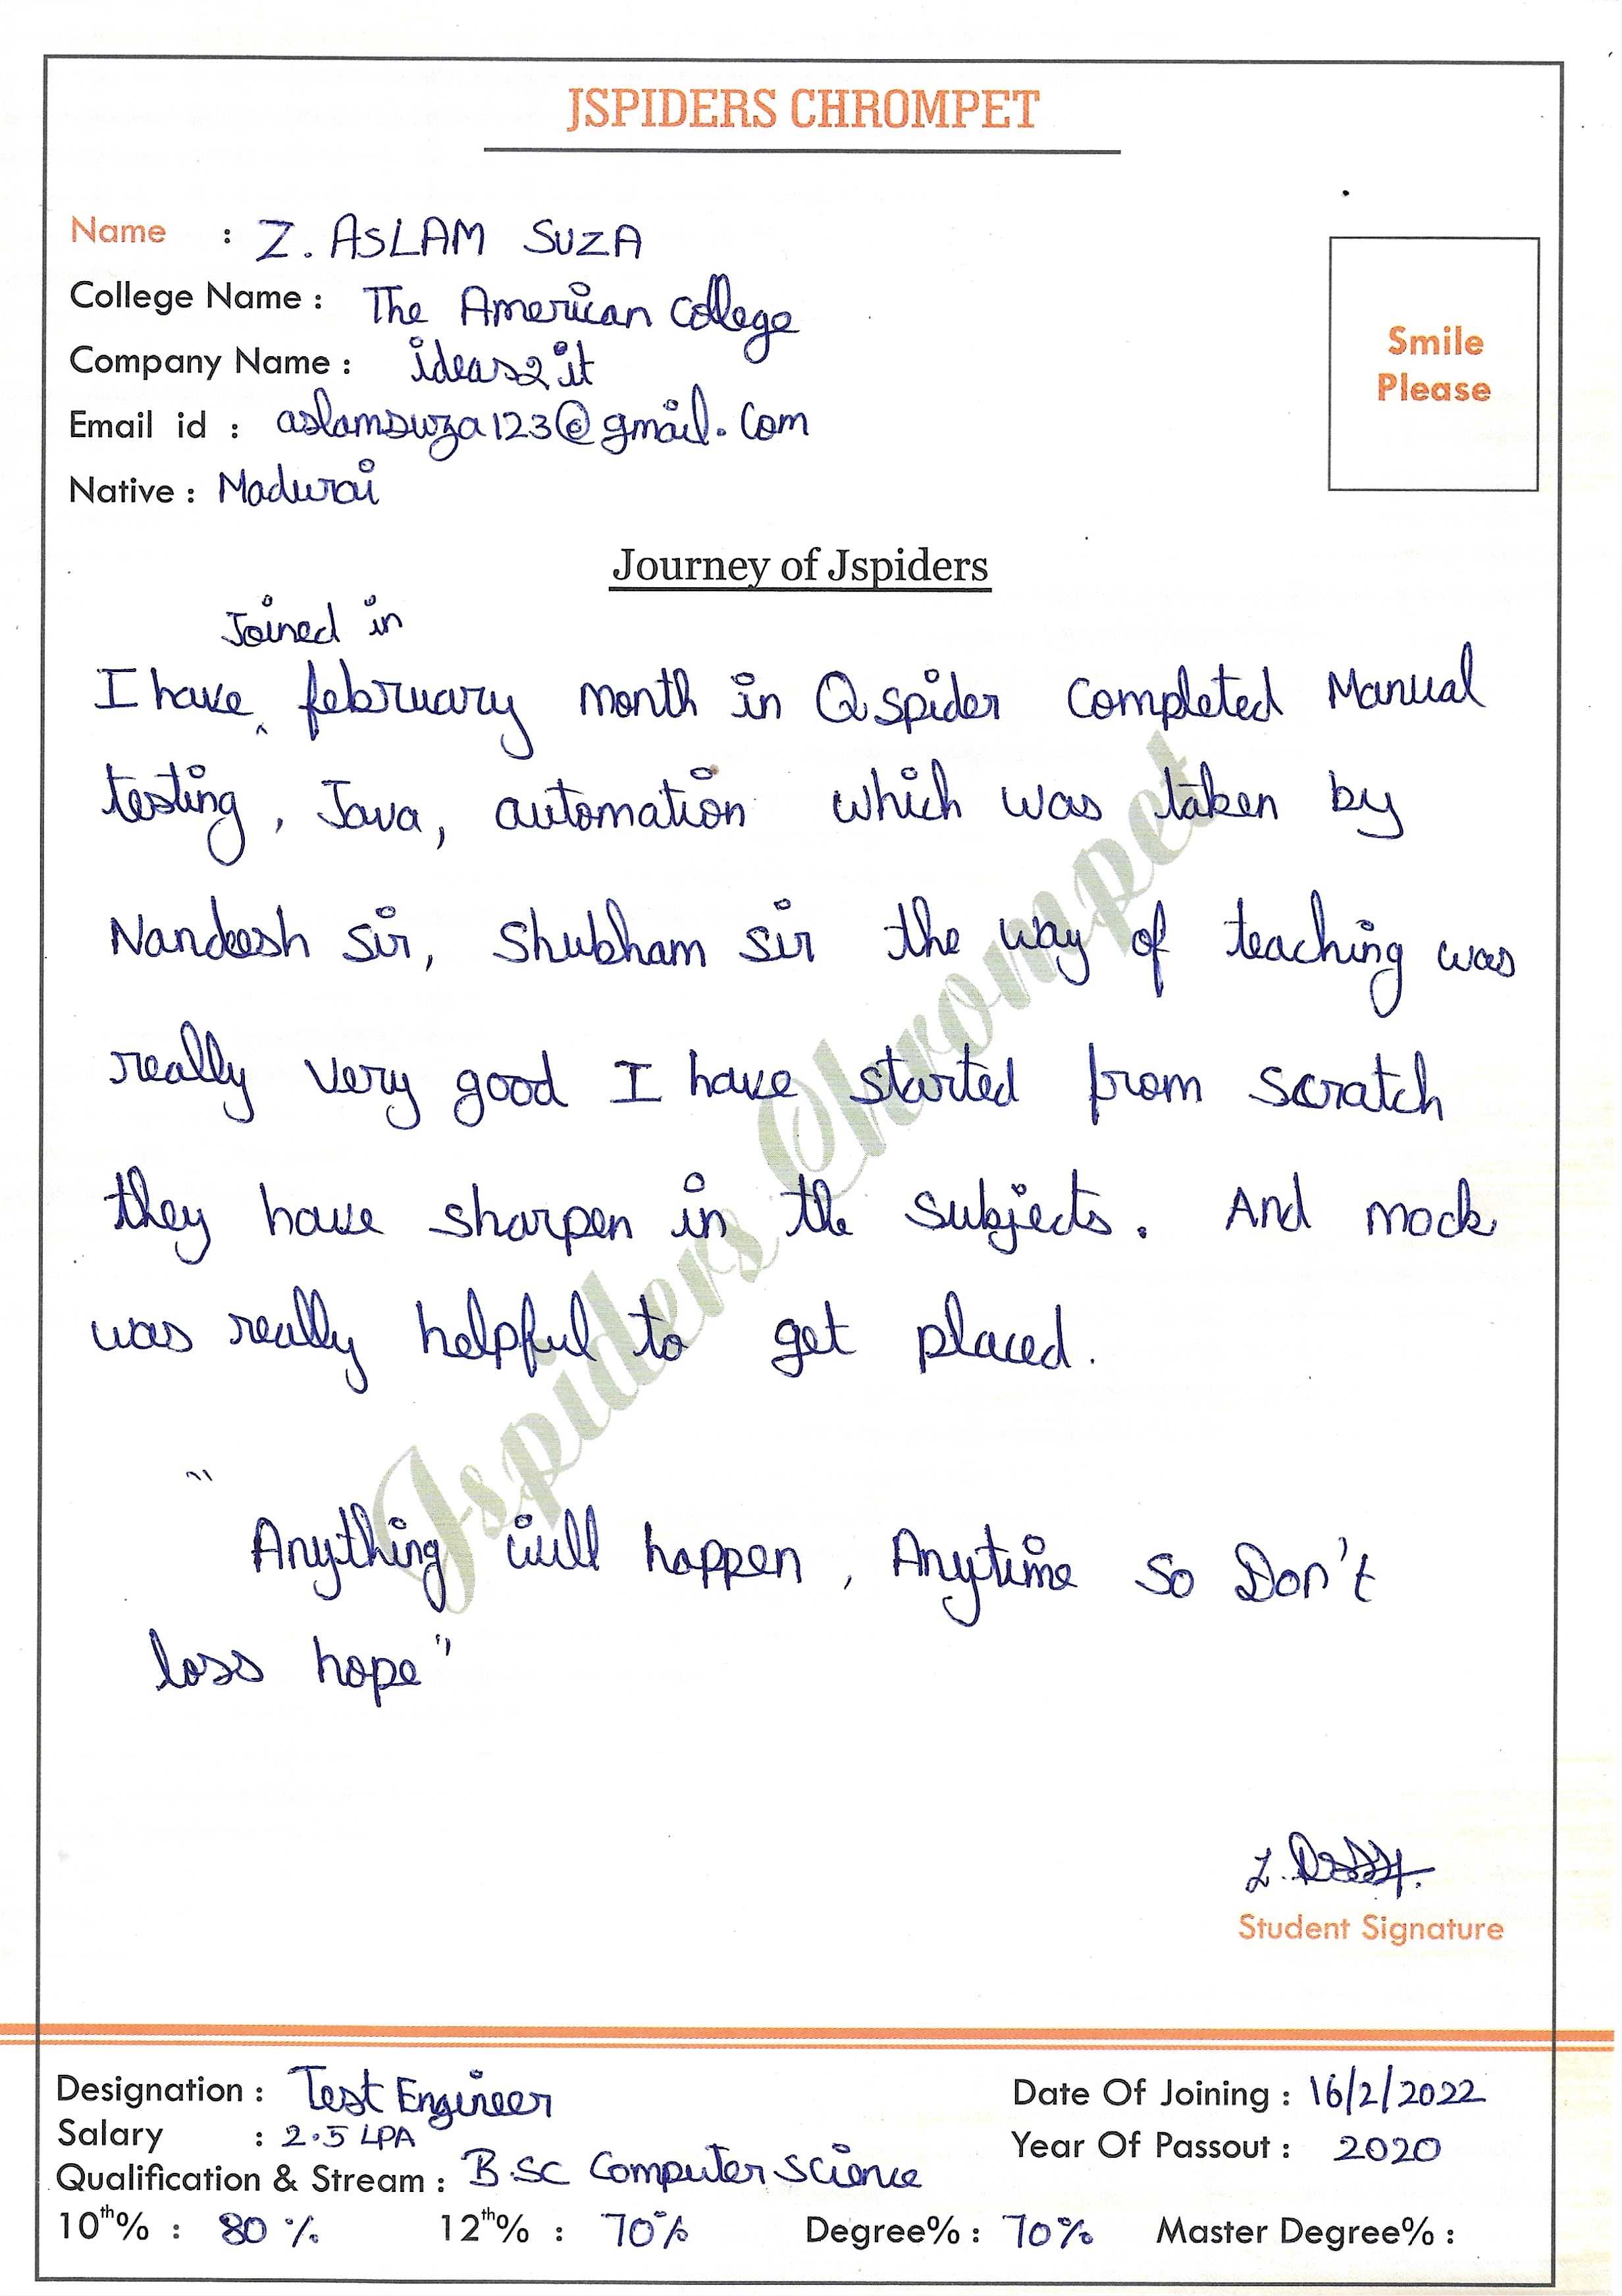 JSPIDERS CHROMPET
Name : Z. ASLAM SUZA
College Name : The American College
Company Name : ideas2it
Email id : aslamsuza123@gmail.com
Native : Madurai
Smile
Please
Journey of Jspiders
Joined in
I have ^ february month in Qspider Completed Manual
testing, Java, automation which was taken by
Nandeesh sir, Shubham sir the way of teaching was
really very good I have started from scratch
they have sharpen in the subjects. And mock
was really helpful to get placed.
"Anything will happen, Anytime So Don't
loss hope"
Jspiders Chrompet
Student Signature
Designation : Test Engineer
Date Of Joining : 16/2/2022
Salary : 2.5 LPA
Year Of Passout : 2020
Qualification & Stream : B.SC Computer Science
10th% : 80 % 12th% : 70% Degree% : 70% Master Degree% :